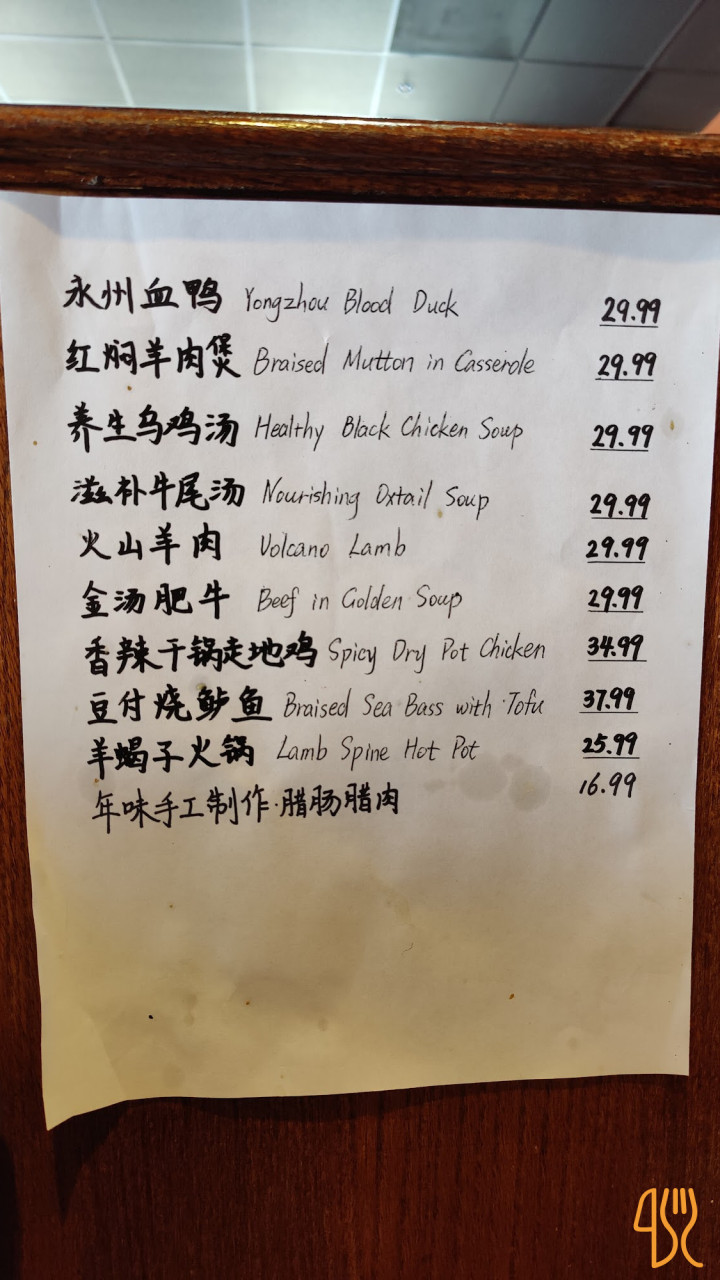 永州血鸭 Yongzhou Blood Duck 29.99
红焖羊肉煲 Braised Mutton in Casserole 29.99
养生乌鸡汤 Healthy Black Chicken Soup 29.99
滋补牛尾汤 Nourishing Oxtail Soup 29.99
火山羊肉 Volcano Lamb 29.99
金汤肥牛 Beef in Golden Soup 29.99
香辣干锅走地鸡 Spicy Dry Pot Chicken 34.99
豆付烧鲈鱼 Braised Sea Bass with Tofu 37.99
羊蝎子火锅 Lamb Spine Hot Pot 25.99
年味手工制作·腊肠腊肉 16.99